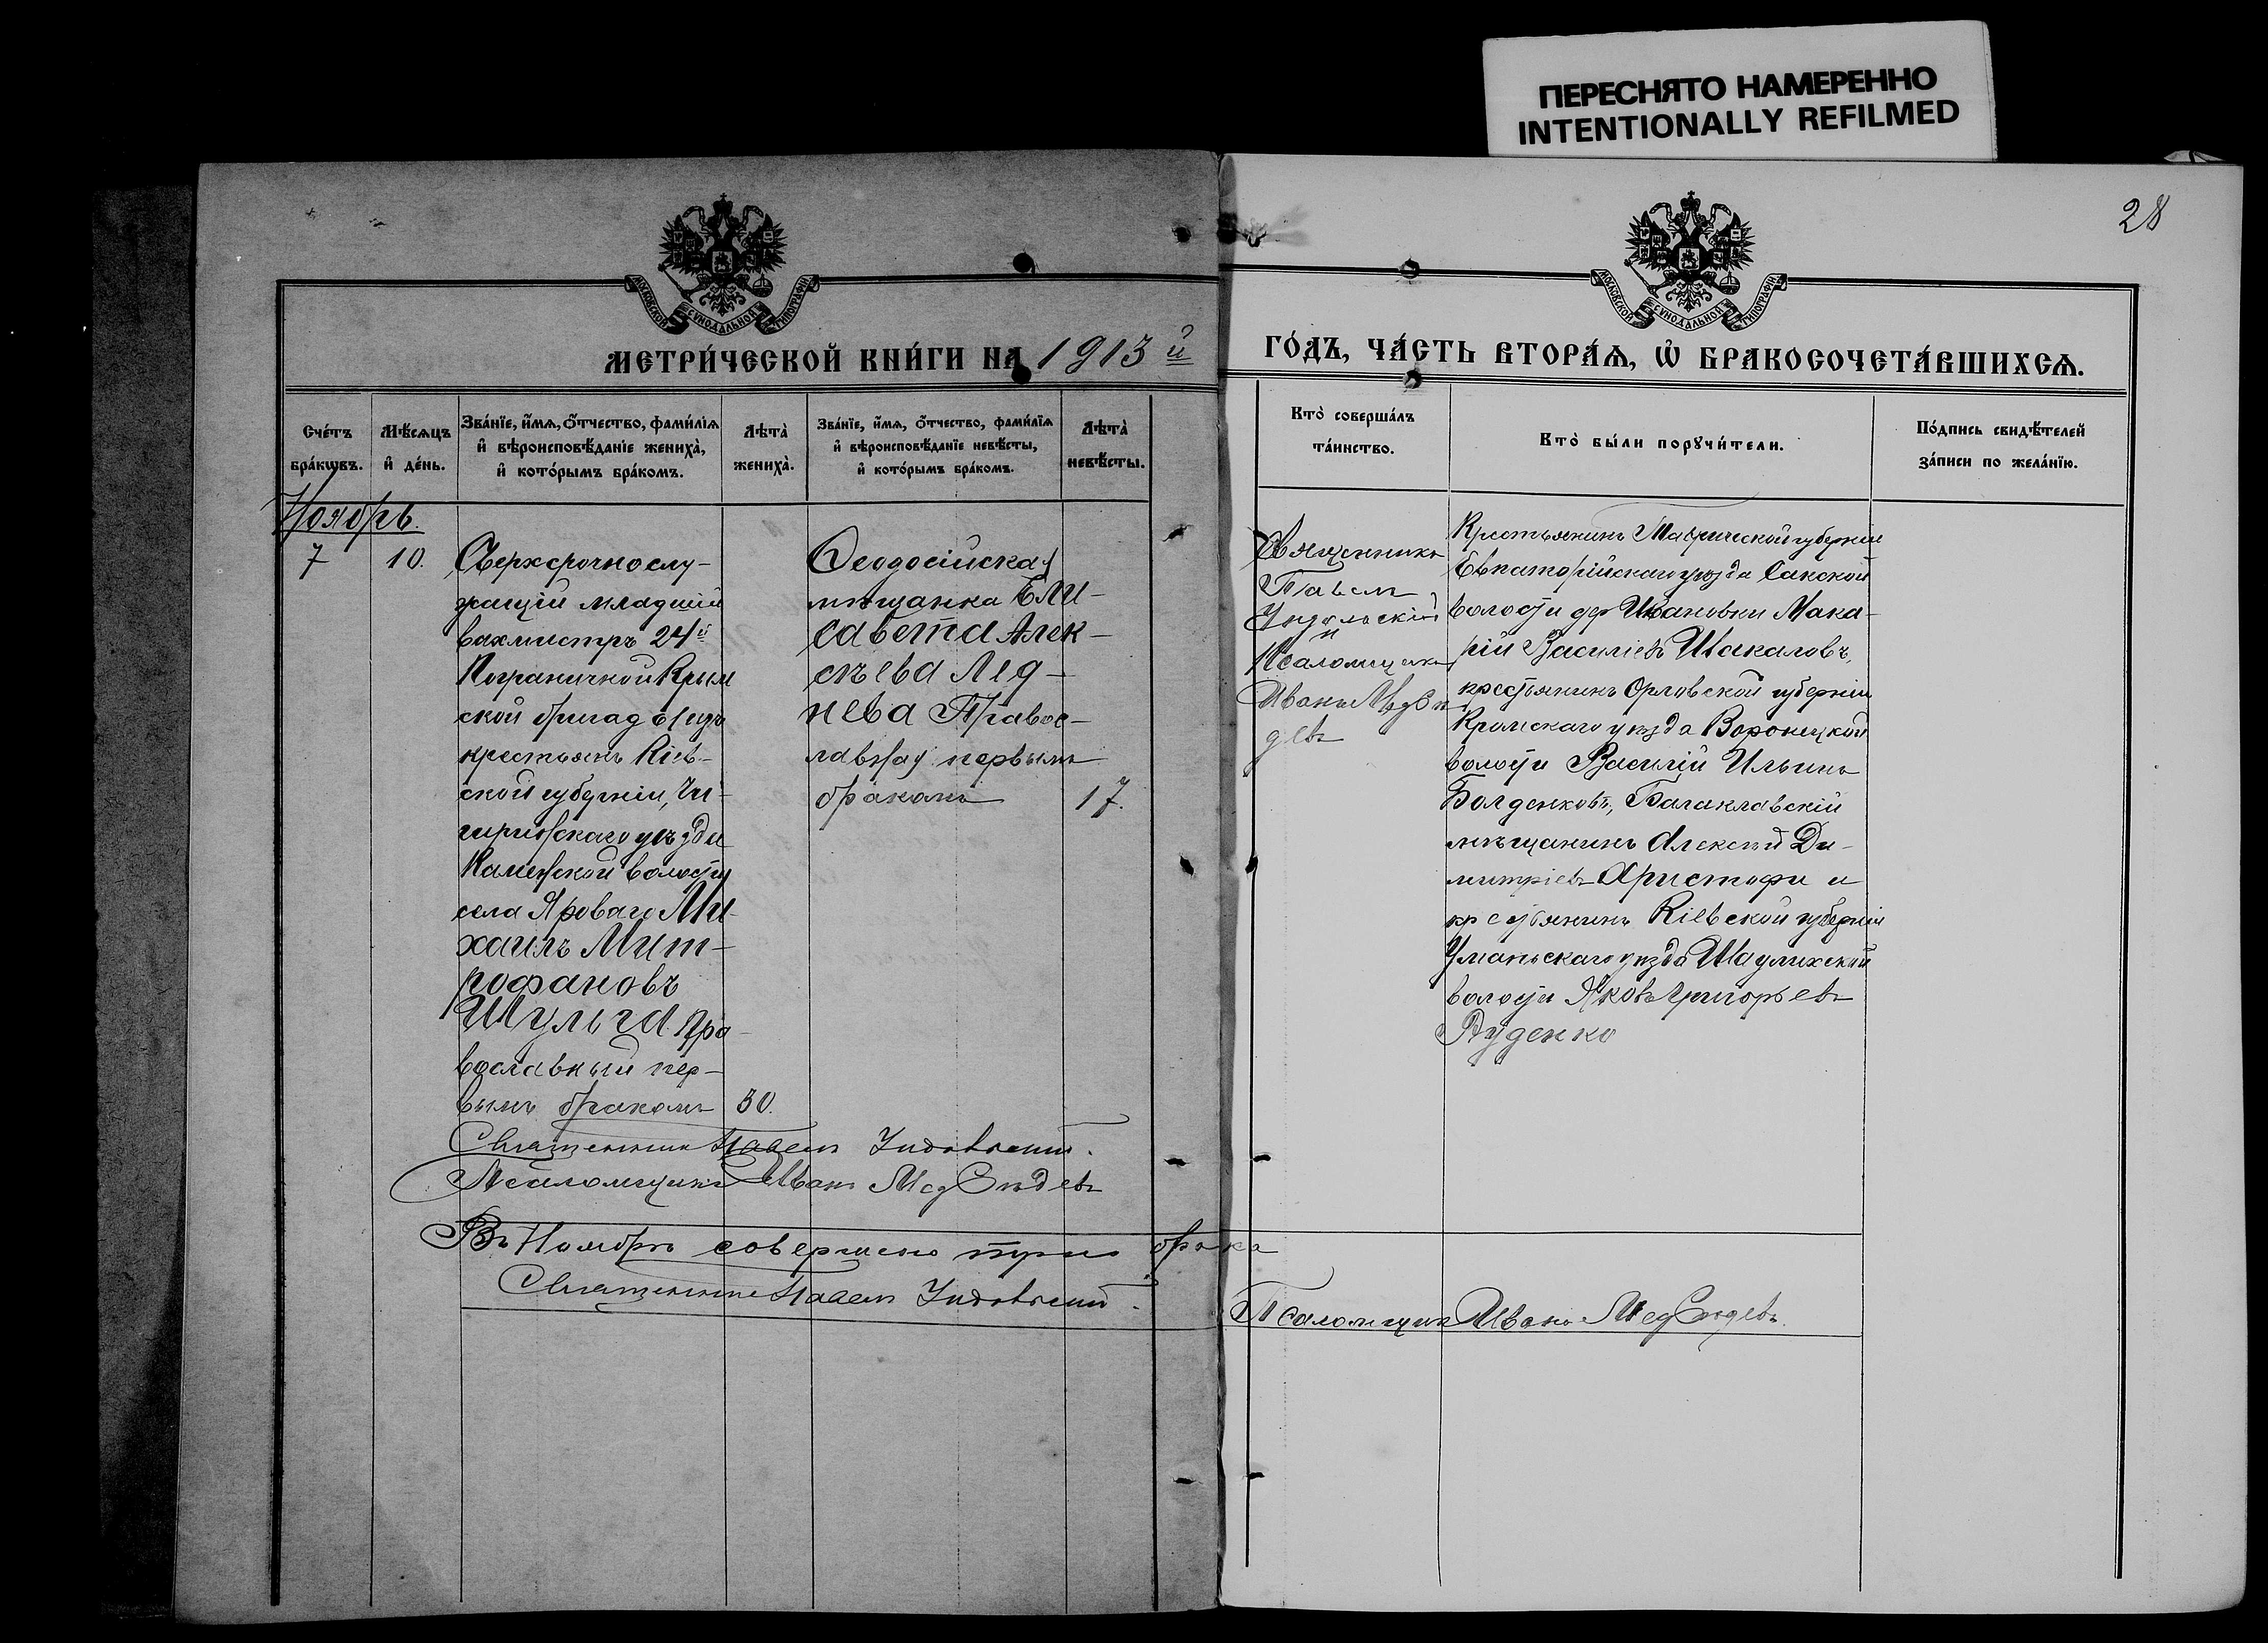 ПЕРЕСНЯТО НАМЕРЕННО
INTENTIONALLY REFILMED
28
МОСКОВСКОЙ СѴНОДАЛЬНОЙ ТИПОГРАФІИ
МОСКОВСКОЙ СѴНОДАЛЬНОЙ ТИПОГРАФІИ
МЕТРИ́ЧЕСКОЙ КНИ́ГИ НА 1913й
ГО́ДЪ, ЧА́СТЬ ВТОРА́Ѧ, Ѡ҆ БРАКОСОЧЕТА́ВШИХСѦ.
Сче́тъ
бра́кѡвъ.
Мѣ́сѧцъ
и҆ де́нь.
Зва́нїе, и҆́мѧ, ѻ҆́тчество, фами́лїѧ
и҆ вѣроисповѣ́данїе жениха̀,
и҆ кото́рымъ бра́комъ.
Лѣта̀
жениха̀.
Зва́нїе, и҆́мѧ, ѻ҆́тчество, фами́лїѧ
и҆ вѣроисповѣ́данїе невѣ́сты,
и҆ кото́рымъ бра́комъ.
Лѣта̀
невѣ́сты.
Кто̀ соверша́лъ
та́инство.
Кто̀ бы́ли порꙋчи́тели.
По́дпись свидѣ́телей
за́писи по жела́нїю.
Ноябрь.
7
10.
Сверхсрочнослу-
жащій младшій
вахмистръ 24й
Пограничной Крым
ской бригады изъ
крестьянъ Кіев-
ской губерніи, Чи-
гиринскаго уѣзда
Каменской волости
села Яроваго Ми-
хаилъ Мит-
рофановъ
Шульга пра-
вославный пер-
вымъ бракомъ
30.
Ѳеодосійская
мѣщанка Ели-
савета Алек-
сѣева Лед-
нева Правос-
лавная первымъ
бракомъ
17.
Священникъ
Павелъ
Индольскій
и
Псаломщикъ
Иванъ Медвѣ
девъ
Крестьянинъ Таврической губерніи
Евпаторійскаго уѣзда Сакской
волости дер Ивановки Мака-
рій Василіевъ Шакаловъ,
крестьянинъ Орловской губерніи
Кромскаго уѣзда Воронецкой
волости Василій Ильинъ
Болденковъ, Балаклавскій
мѣщанинъ Алексѣй Ди-
митріевъ Христофи и
крестьянинъ Кіевской губерніи
Уманьскаго уѣзда Шаулихской
волости Яковъ Григорьевъ
Руденко
Священникъ Павелъ Индольскій.
Псаломщикъ Иванъ Медвѣдевъ
Въ Ноябрѣ совершено три брака
Священникъ Павелъ Индольскій.
Псаломщикъ Иванъ Медвѣдевъ.